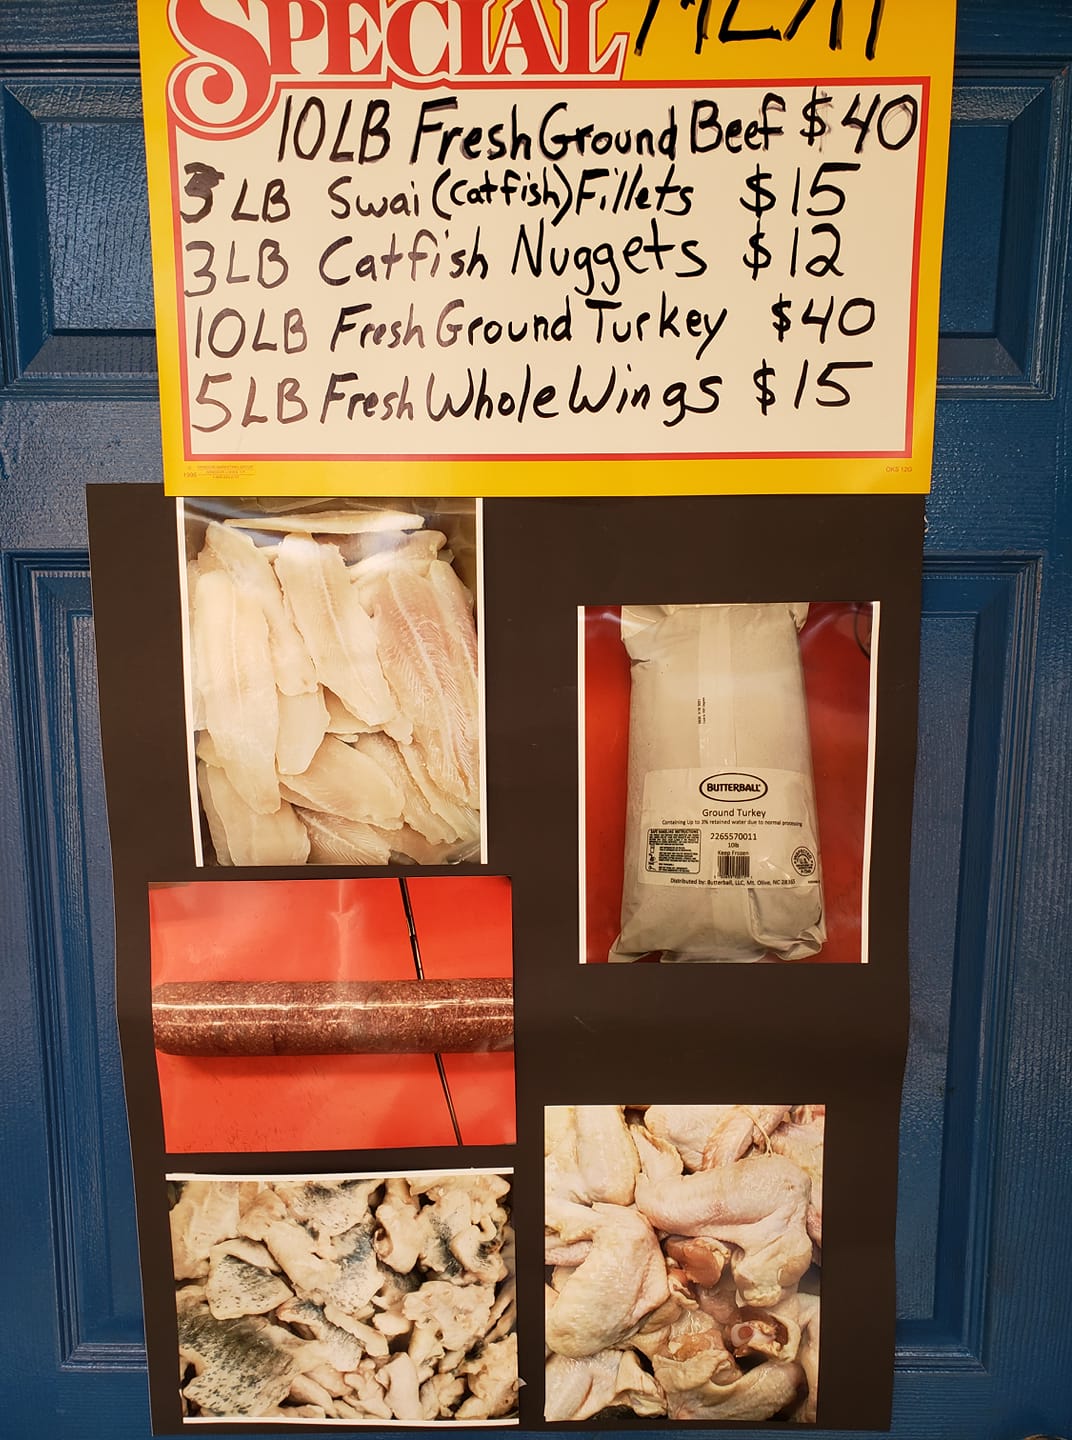 SPECIAL MEAT
10LB Fresh Ground Beef $40
3 LB Swai (Catfish) Fillets $15
3LB Catfish Nuggets $12
10LB Fresh Ground Turkey $40
5LB Fresh Whole Wings $15
1995
OKS 12G
BUTTERBALL
Ground Turkey
Containing Up to 3% retained water due to normal processing
SAFE HANDLING INSTRUCTIONS
2265570011
10lb
Keep Frozen
Distributed by: Butterball, LLC, Mt. Olive, NC 28365